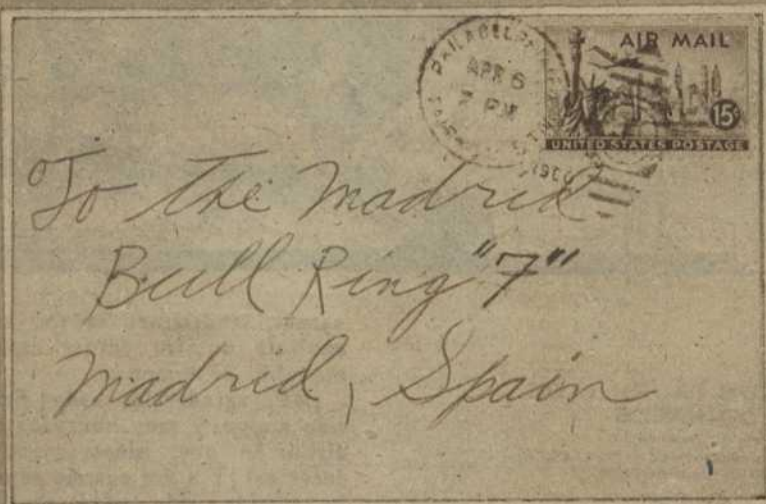 PHILADELPHIA
APR 6
7 PM
1960
AIR MAIL
15¢
UNITED STATES POSTAGE
To the Madrid
Bull Ring "7"
Madrid, Spain